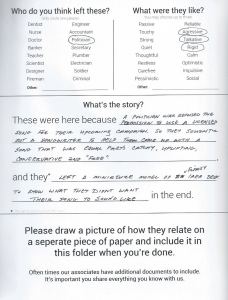 Who do you think left these?
What were they like?
Dentist Engineer Passive Reliable
Nurse Accountant Touchy Aggressive
Doctor Politician Strong Talkative
Banker Secretary Quiet Rigid
Teacher Plumber Thoughtful Calm
Scientist Electrician Restless Optimistic
Designer Soldier Carefree Impulsive
Fireman Criminal Pessimistic Social
Other: Other:
What's the story?
These were here because A POLITICIAN WAS DENIED THE
PERMISSION TO USE A LICENSED
SONG FOR THEIR UPCOMING CAMPAIGN. SO THEY SOUGHT
OUT A SONGWRITER TO HELP THEM COME UP WITH A
SONG THAT WAS EQUAL PARTS CATCHY, UPLIFTING,
CONSERVATIVE AND "FREE"
and they LEFT A MINIATURE MODEL OF
TO SHOW WHAT THEY DIDN'T WANT
THEIR SONG TO SOUND LIKE in the end.
Please draw a picture of how they relate on
a seperate piece of paper and include it in
this folder when you're done.
Often times our associates have additional documents to include.
It's important you share everything you know with us.